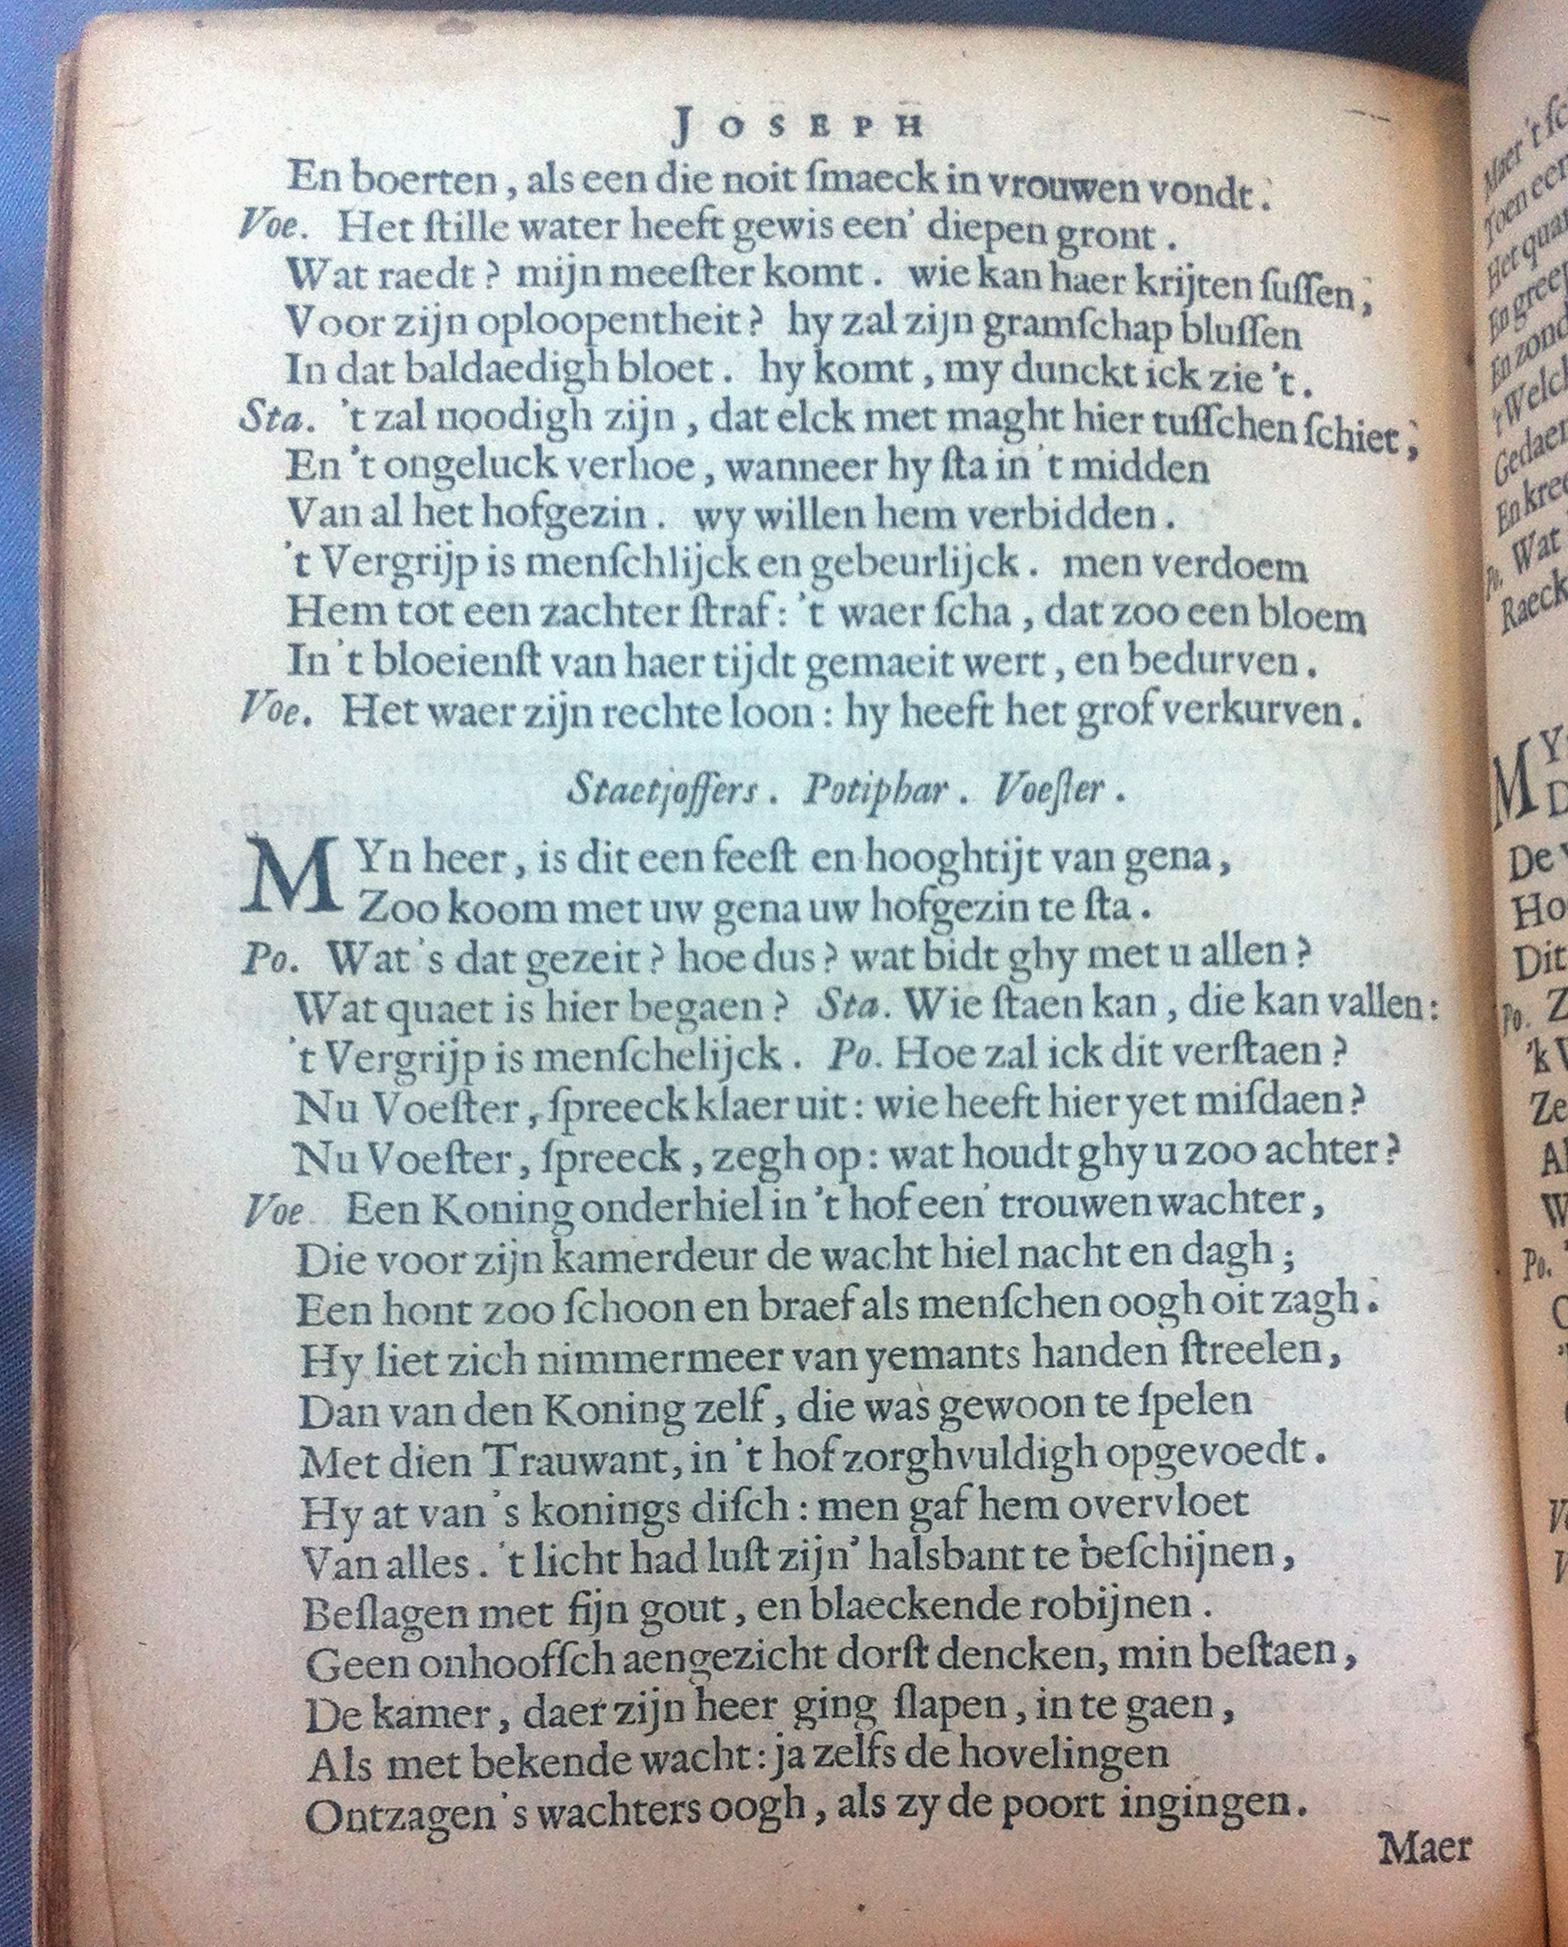 JOSEPH
En boerten, als een die noit ſmaeck in vrouwen vondt.
Voe. Het ſtille water heeft gewis een' diepen gront.
Wat raedt? mijn meeſter komt. wie kan haer krijten ſuſſen,
Voor zijn oploopentheit? hy zal zijn gramſchap bluſſen
In dat baldaedigh bloet. hy komt, my dunckt ick zie 't.
Sta. 't zal noodigh zijn, dat elck met maght hier tuſſchen ſchiet,
En 't ongeluck verhoe, wanneer hy ſta in 't midden
Van al het hofgezin. wy willen hem verbidden.
't Vergrijp is menſchlijck en gebeurlijck. men verdoem
Hem tot een zachter ſtraf: 't waer ſcha, dat zoo een bloem
In 't bloeienſt van haer tijdt gemaeit wert, en bedurven.
Voe. Het waer zijn rechte loon: hy heeft het grof verkurven.
Staetjoffers. Potiphar. Voeſter.
MYn heer, is dit een feeſt en hooghtijt van gena,
Zoo koom met uw gena uw hofgezin te ſta.
Po. Wat 's dat gezeit? hoe dus? wat bidt ghy met u allen?
Wat quaet is hier begaen? Sta. Wie ſtaen kan, die kan vallen:
't Vergrijp is menſchelijck. Po. Hoe zal ick dit verſtaen?
Nu Voeſter, ſpreeck klaer uit: wie heeft hier yet miſdaen?
Nu Voeſter, ſpreeck, zegh op: wat houdt ghy u zoo achter?
Voe. Een Koning onderhiel in 't hof een' trouwen wachter,
Die voor zijn kamerdeur de wacht hiel nacht en dagh;
Een hont zoo ſchoon en braef als menſchen oogh oit zagh.
Hy liet zich nimmermeer van yemants handen ſtreelen,
Dan van den Koning zelf, die was gewoon te ſpelen
Met dien Trauwant, in 't hof zorghvuldigh opgevoedt.
Hy at van 's konings diſch: men gaf hem overvloet
Van alles. 't licht had luſt zijn' halsbant te beſchijnen,
Beſlagen met fijn gout, en blaeckende robijnen.
Geen onhoofſch aengezicht dorſt dencken, min beſtaen,
De kamer, daer zijn heer ging ſlapen, in te gaen,
Als met bekende wacht: ja zelfs de hovelingen
Ontzagen 's wachters oogh, als zy de poort ingingen.
Maer
Maer 't
Toen een
Het
En
En
't Welck
En
Po. Wat
Raeck
De
Dit
Po.
Po.